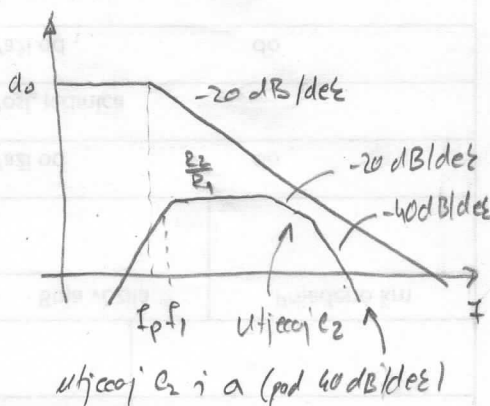 a₀
-20 dB/dek
R₂/R₁
-20 dB/dek
-40 dB/dek
fₚ f₁
utjecaj C₂
f
utjecaj C₂ i a (pad 40 dB/dek)